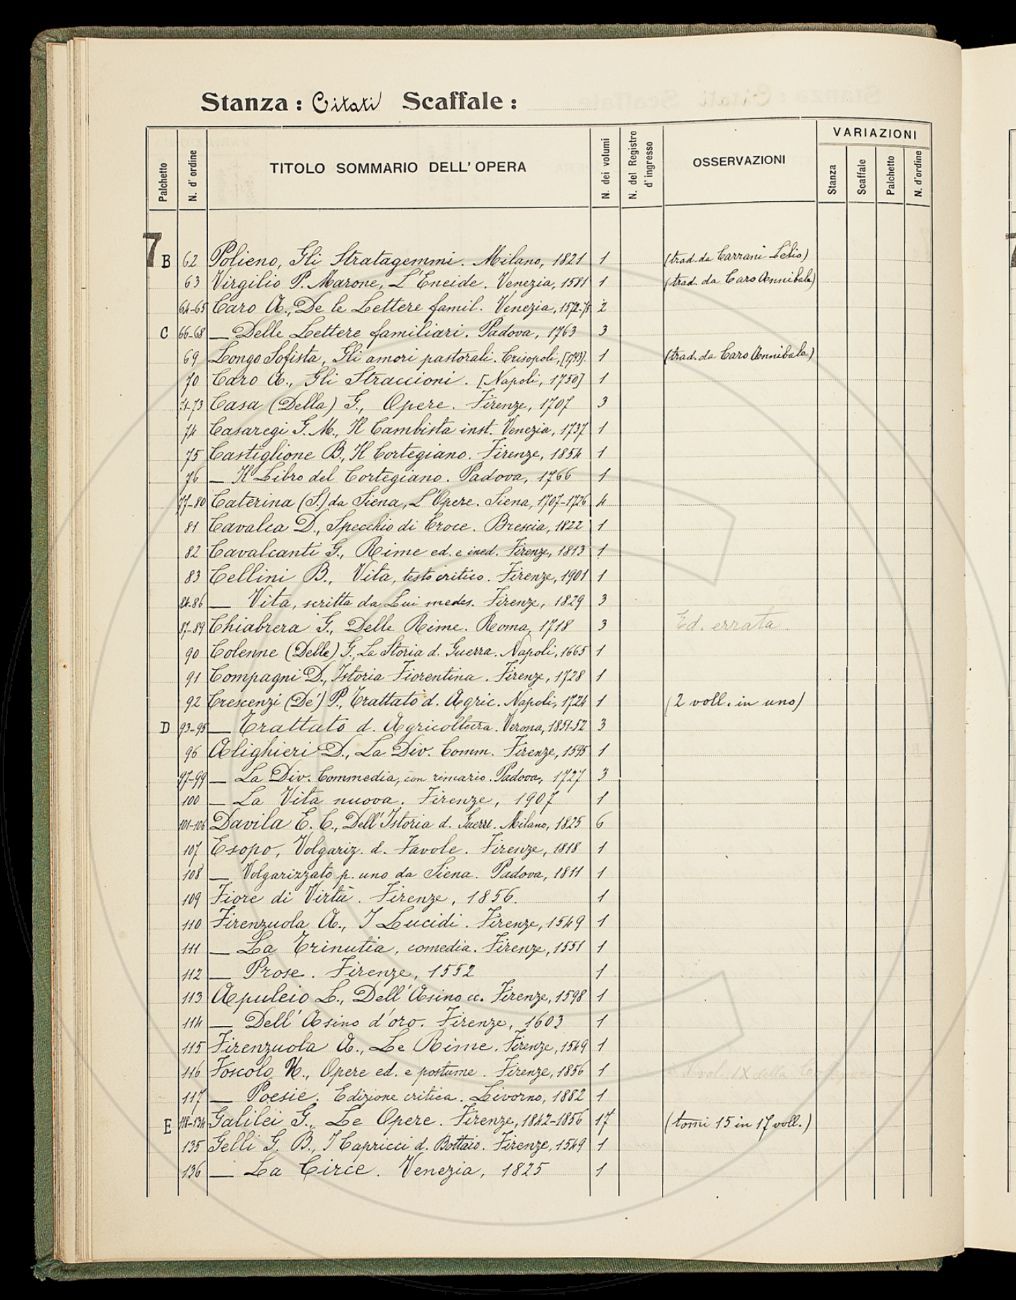 Stanza: Citati Scaffale:
Palchetto N. d'ordine TITOLO SOMMARIO DELL'OPERA N. dei volumi N. del Registro d'ingresso OSSERVAZIONI VARIAZIONI
Stanza Scaffale Palchetto N. d'ordine
7 B 62 Polieno, Gli Stratagemmi. Milano, 1821 1 (trad. da Carrani Lelio)
63 Virgilio P. Marone, L'Eneide. Venezia, 1581 1 (trad. da Caro Annibale)
64-65 Caro A., De le Lettere famil. Venezia, 1572-75 2
C 66-68 — Delle Lettere familiari. Padova, 1763 3
69 Longo Sofista, Gli amori pastorali. Crisopoli, [1793]. 1 (trad. da Caro Annibale)
70 Caro A., Gli Straccioni. [Napoli, 1750] 1
71-73 Casa (Della) G., Opere. Firenze, 1707 3
74 Casaregi G. M., Il Cambista inst. Venezia, 1737 1
75 Castiglione B., Il Cortegiano. Firenze, 1854 1
76 — Il Libro del Cortegiano. Padova, 1766 1
77-80 Caterina (S.) da Siena, L'Opere. Siena, 1707-1726 4
81 Cavalca D., Specchio di Croce. Brescia, 1822 1
82 Cavalcanti G., Rime ed. e ined. Firenze, 1813 1
83 Cellini B., Vita, testo critico. Firenze, 1901 1
84-86 — Vita, scritta da Lui medes. Firenze, 1829 3
87-89 Chiabrera G., Delle Rime. Roma, 1718 3 Ed. errata
90 Colenne (Delle) G., La Storia d. Guerra. Napoli, 1665 1
91 Compagni D., Istoria Fiorentina. Firenze, 1728 1
92 Crescenzi (De') P., Trattato d. Agric. Napoli, 1724 1 (2 voll. in uno)
D 93-95 — Trattato d. Agricoltura. Verona, 1851-52 3
96 Alighieri D., La Div. Comm. Firenze, 1595 1
97-99 — La Div. Commedia, con rimario. Padova, 1727 3
100 — La Vita nuova. Firenze, 1907 1
101-106 Davila E. C., Dell'Istoria d. Guerre. Milano, 1825 6
107 Esopo, Volgariz. d. Favole. Firenze, 1818 1
108 — Volgarizzato p. uno da Siena. Padova, 1811 1
109 Fiore di Virtù. Firenze, 1856. 1
110 Firenzuola A., I Lucidi. Firenze, 1549 1
111 — La Trinutia, comedia. Firenze, 1551 1
112 — Prose. Firenze, 1552 1
113 Apuleio L., Dell'Asino ec. Firenze, 1598 1
114 — Dell'Asino d'oro. Firenze, 1603 1
115 Firenzuola A., Le Rime. Firenze, 1549 1
116 Foscolo U., Opere ed. e postume. Firenze, 1856 1 vol. IX della
117 — Poesie. Edizione critica. Livorno, 1882 1
E 118-134 Galilei G., Le Opere. Firenze, 1842-1856 17 (tomi 15 in 17 voll.)
135 Gelli G. B., I Capricci d. Bottaio. Firenze, 1549 1
136 — La Circe. Venezia, 1825 1